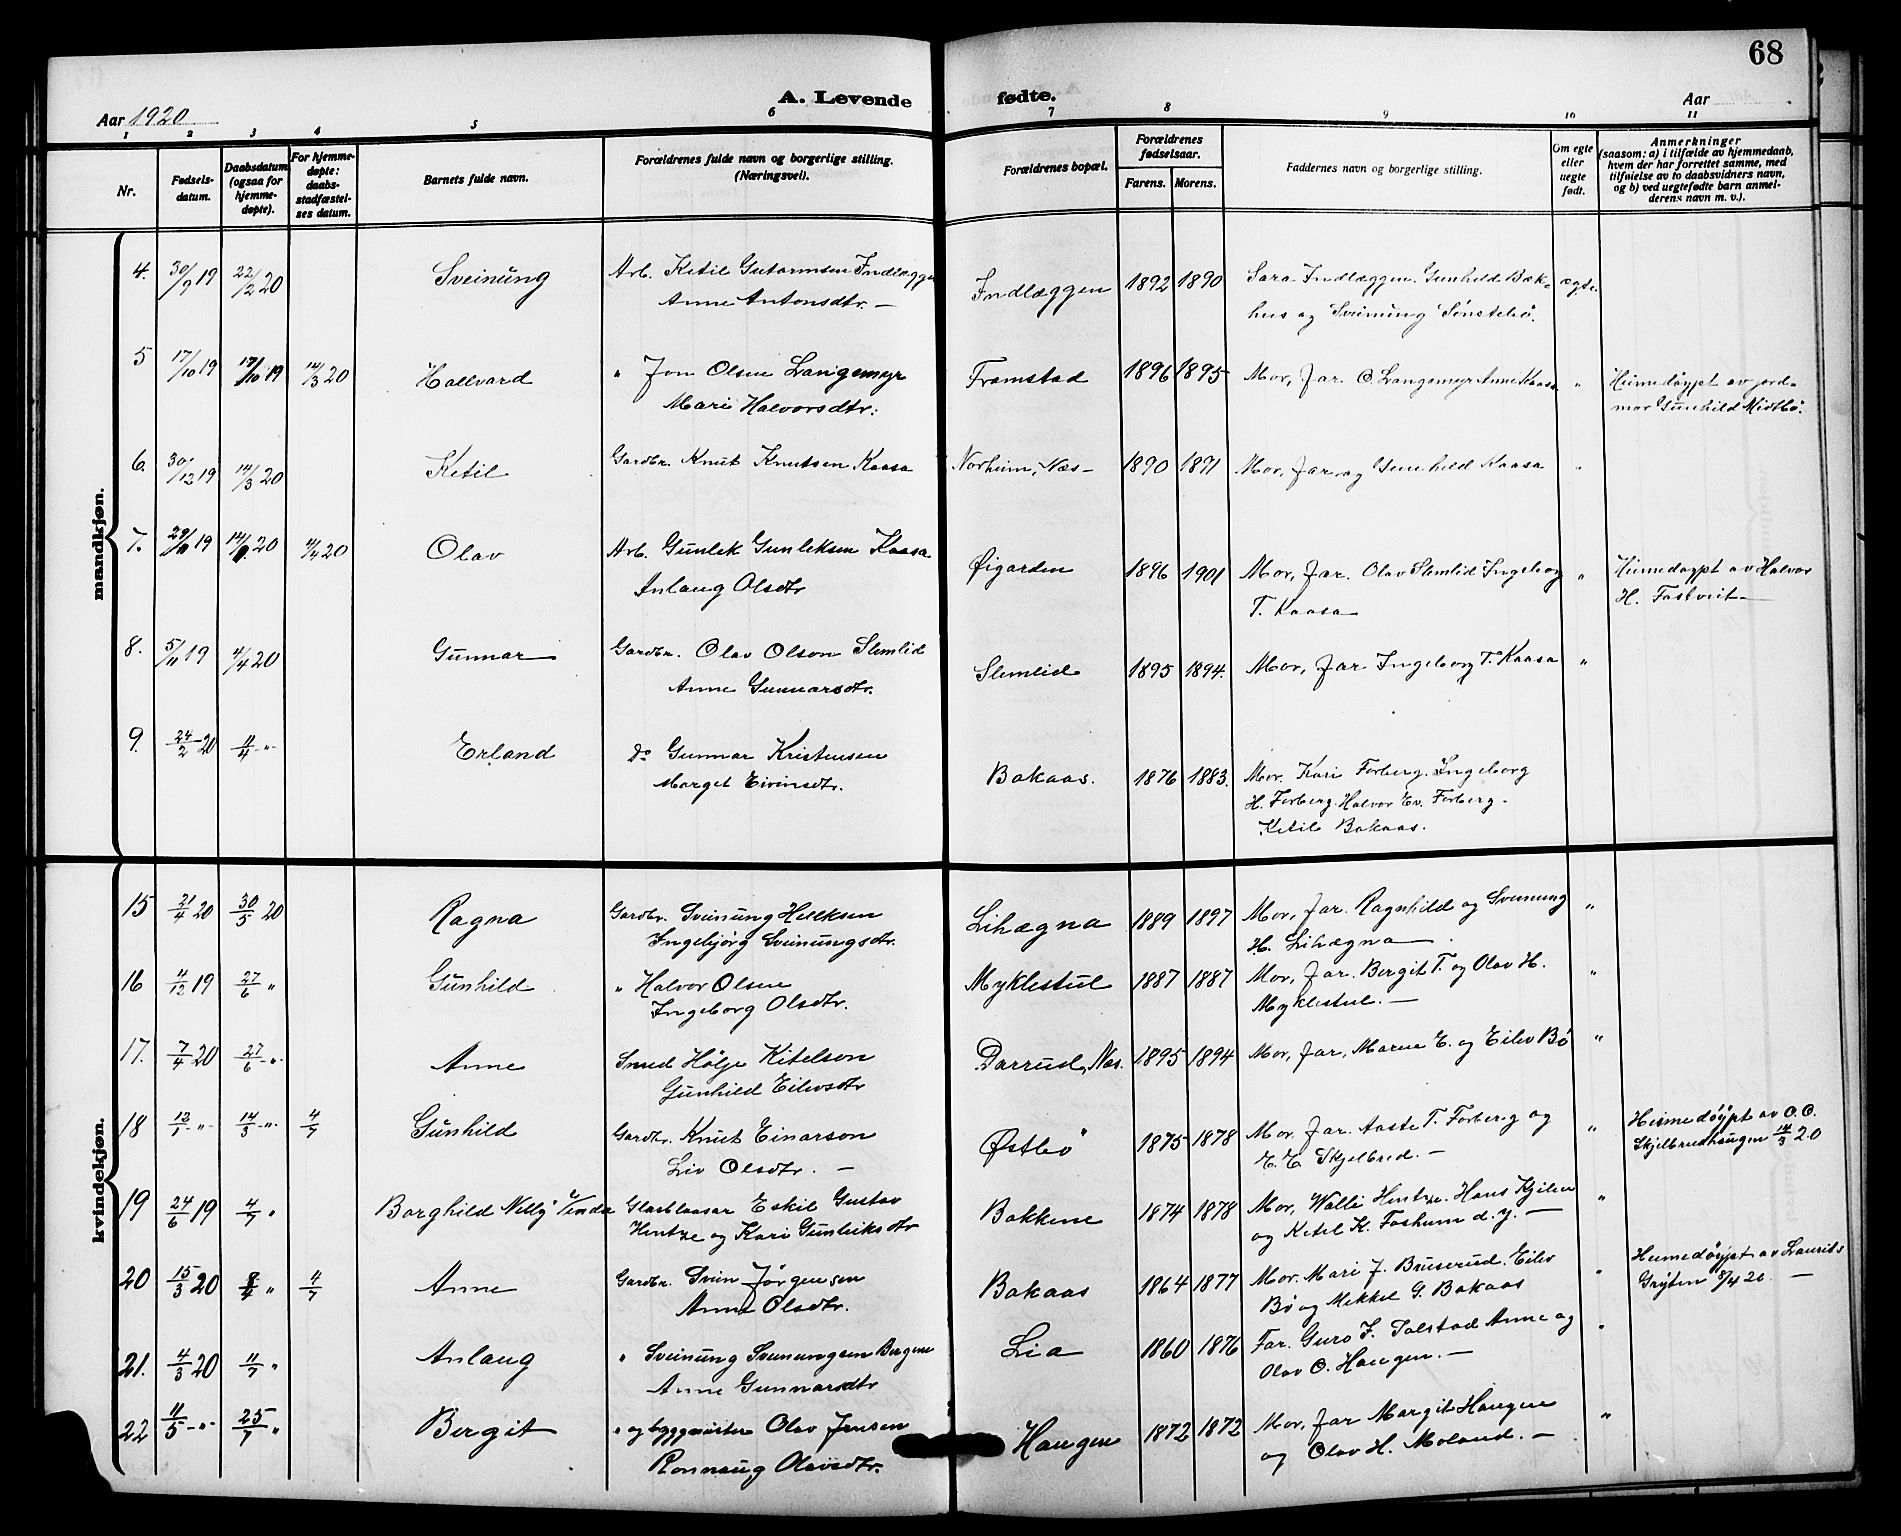 68
A. Levende fødte.
Aar 1920
Aar
1 2 3 4 5 6 7 8 9 10 11
Nr. | Fødsels-datum. | Daabsdatum (ogsaa for hjemme-døpte). | For hjemme-døpte: daabs-stadfæstel-ses datum. | Barnets fulde navn. | Forældrenes fulde navn og borgerlige stilling. (Næringsvei). | Forældrenes bopæl. | Forældrenes fødselsaar. Farens. Morens. | Faddernes navn og borgerlige stilling. | Om egte eller uegte født. | Anmerkninger (saasom: a) i tilfælde av hjemmedaab, hvem der har forrettet samme, med tilføielse av to daabsvidners navn, og b) ved uegtefødte barn anmel-derens navn m. v.).
mandkjøn.
4. 30/9 19 22/2 20 Sveinung Arb. Ketil Gutormsen Indlæggen Indlæggen 1892 1890 Sara Indlæggen. Gunhild Bæk- ægte.
Anne Antonsdtr. — hus og Sveinung Sønstebø.
5 17/10 19 17/10 19 14/3 20 Hallvard " Jon Olsen Langemyr Framstad 1896 1895 Mor, far O. Langemyr Anne Kaasa " Heimedøypt av jord-
Mari Halvorsdtr. mor Gunhild Midtbø.
6. 30/12 19 14/3 20 Ketil Gardbr. Knut Knutsen Kaasa Norheim, Næs- 1890 1891 Mor, far og Gunhild Kaasa "
7. 29/10 19 20 4/4 20 Olav Arb. Gunlek Gunleksen Kaasa Øigarden 1896 1901 Mor, far. Olav Slemlid Ingeborg " Heimedøypt av Halvor
Anlaug Olsdtr T. Kaasa H. Tostveit
8. 5/11 19 4/4 20 Gunnar Gardbr. Olav Olson Slemlid Slemlid 1895 1894. Mor, far Ingeborg T. Kaasa "
Anne Gunnarsdtr.
9. 24/2 20 11/4 " Erland do Gunnar Kristensen Bakaas. 1876 1883. Mor. Kari Forberg. Ingeborg
Marget Eivinsdtr. H. Forberg. Halvor Ev. Forberg.
Ketil Bakaas.
kvindekjøn.
15 21/4 20 30/5 20 Ragna Gardbr. Sveinung Helleksen Lihægna 1889 1897 Mor, far. Ragnhild og Sveinung "
Ingebjørg Sveinungsdtr. H. Lihægna
16 4/12 19 27/6 " Gunhild " Halvor Olsen Myklestul 1887 1887 Mor, far. Bergit T. og Olav H. "
Ingeborg Olsdtr. Myklestul. —
17. 7/4 20 27/6 " Anne Smed Hølje Kitelson Darrud, Næs. 1895 1894 Mor, far, Maren E. og Eilev Bø "
Gunhild Eilevsdtr
18 12/1 " 14/3 " 4/7 Gunhild Gardbr. Knut Einarson Østbø 1875 1878 Mor, far. Aaste T. Forberg og " Heimedøypt av O.O.
Liv Olsdtr. — E. E. Skjelbred. — Skjelbredhaugen 14/3 20
19 24/6 19 4/7 " Borghild Nelly Glasblaasar Eskil Gustav Bakkene 1874 1878 Mor, Walli Hentze. Hans Kjilen "
Hentze og Kari Gunleiksdtr og Ketil K. Foshum d. y. —
20 15/3 20 8/4 " 4/7 Anne Gardbr. Svein Jørgensen Bakaas 1864 1877 Mor. Mari J. Bruserud. Eilev " Heimedøypt av Laurits
Anne Olsdtr. Bø og Mikkel G. Bakaas Gryten 8/4 20. —
21. 4/3 20 11/7 " Anlaug " Sveinung Sveinungsen Bergene Lia 1860 1876 Far. Guro F. Tolstad Anne og "
Anne Gunnarsdtr Olav O. Haugen. —
22 11/5 " 25/7 " Bergit " og byggmeister Olav Jensen Haugen 1872 1872 Mor, far Margit Haugen "
Rønnaug Olavsdtr. og Olav H. Moland. —